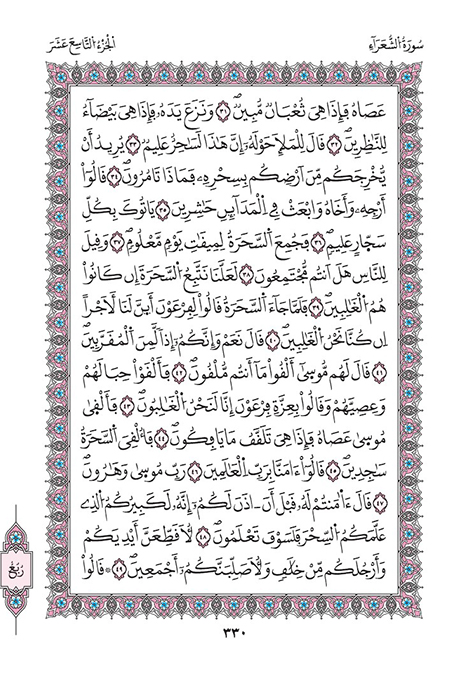 سُورَةُ الشُّعَرَآءِ
الجُزْءُ التَّاسِعَ عَشَرَ
عَصَاهُ فَإِذَا هِيَ ثُعْبَانٌ مُّبِينٌ ٣١ وَنَزَعَ يَدَهُۥ فَإِذَا هِيَ بَيْضَآءُ
لِلنَّٰظِرِينَ ٣٢ قَالَ لِلْمَلَإِ حَوْلَهُۥٓ إِنَّ هَٰذَا لَسَٰحِرٌ عَلِيمٌ ٣٣ يُرِيدُ أَنْ
يُّخْرِجَكُم مِّنَ اَرْضِكُم بِسِحْرِهِۦ فَمَاذَا تَامُرُونَ ٣٤ قَالُوٓاْ
أَرْجِهِۦ وَأَخَاهُ وَابْعَثْ فِي اِلْمَدَآئِنِ حَٰشِرِينَ ٣٥ يَاتُوكَ بِكُلِّ
سَحّ۪ارٍ عَلِيمٍ ٣٦ فَجُمِعَ اَلسَّحَرَةُ لِمِيقَٰتِ يَوْمٍ مَّعْلُومٍ ٣٧ وَقِيلَ
لِلنَّاسِ هَلَ اَنتُم مُّجْتَمِعُونَ ٣٨ لَعَلَّنَا نَتَّبِعُ اُلسَّحَرَةَ إِن كَانُواْ
هُمُ اُلْغَٰلِبِينَ ٣٩ فَلَمَّا جَآءَ اَلسَّحَرَةُ قَالُواْ لِفِرْعَوْنَ أَيِنَّ لَنَا لَأَجْراً
اِن كُنَّا نَحْنُ اُلْغَٰلِبِينَ ٤٠ قَالَ نَعَمْ وَإِنَّكُمُۥٓ إِذاً لَّمِنَ اَلْمُقَرَّبِينَ
٤١ قَالَ لَهُم مُّوس۪يٰٓ أَلْقُواْ مَآ أَنتُم مُّلْقُونَ ٤٢ فَأَلْقَوْاْ حِبَالَهُمْ
وَعِصِيَّهُمْ وَقَالُواْ بِعِزَّةِ فِرْعَوْنَ إِنَّا لَنَحْنُ اُلْغَٰلِبُونَ ٤٣ فَأَلْق۪يٰ
مُوس۪يٰ عَصَاهُ فَإِذَا هِيَ تَلَقَّفُ مَا يَافِكُونَ ٤٤ فَأُلْقِيَ اَلسَّحَرَةُ
سَٰجِدِينَ ٤٥ قَالُوٓاْ ءَامَنَّا بِرَبِّ اِلْعَٰلَمِينَ ٤٦ رَبِّ مُوس۪يٰ وَهَٰرُونَ
٤٧ قَالَ ءَاٰمَنتُمْ لَهُۥ قَبْلَ أَنَ اٰذَنَ لَكُمُۥٓ إِنَّهُۥ لَكَبِيرُكُمُ اُلذِي
عَلَّمَكُمُ اُلسِّحْرَ فَلَسَوْفَ تَعْلَمُونَ ٤٨ لَأُقَطِّعَنَّ أَيْدِيَكُمْ
وَأَرْجُلَكُم مِّنْ خِلَٰفٍ وَلَأُصَلِّبَنَّكُمُۥٓ أَجْمَعِينَ ٤٩ قَالُواْ
رُبُعٌ
٣٣٠